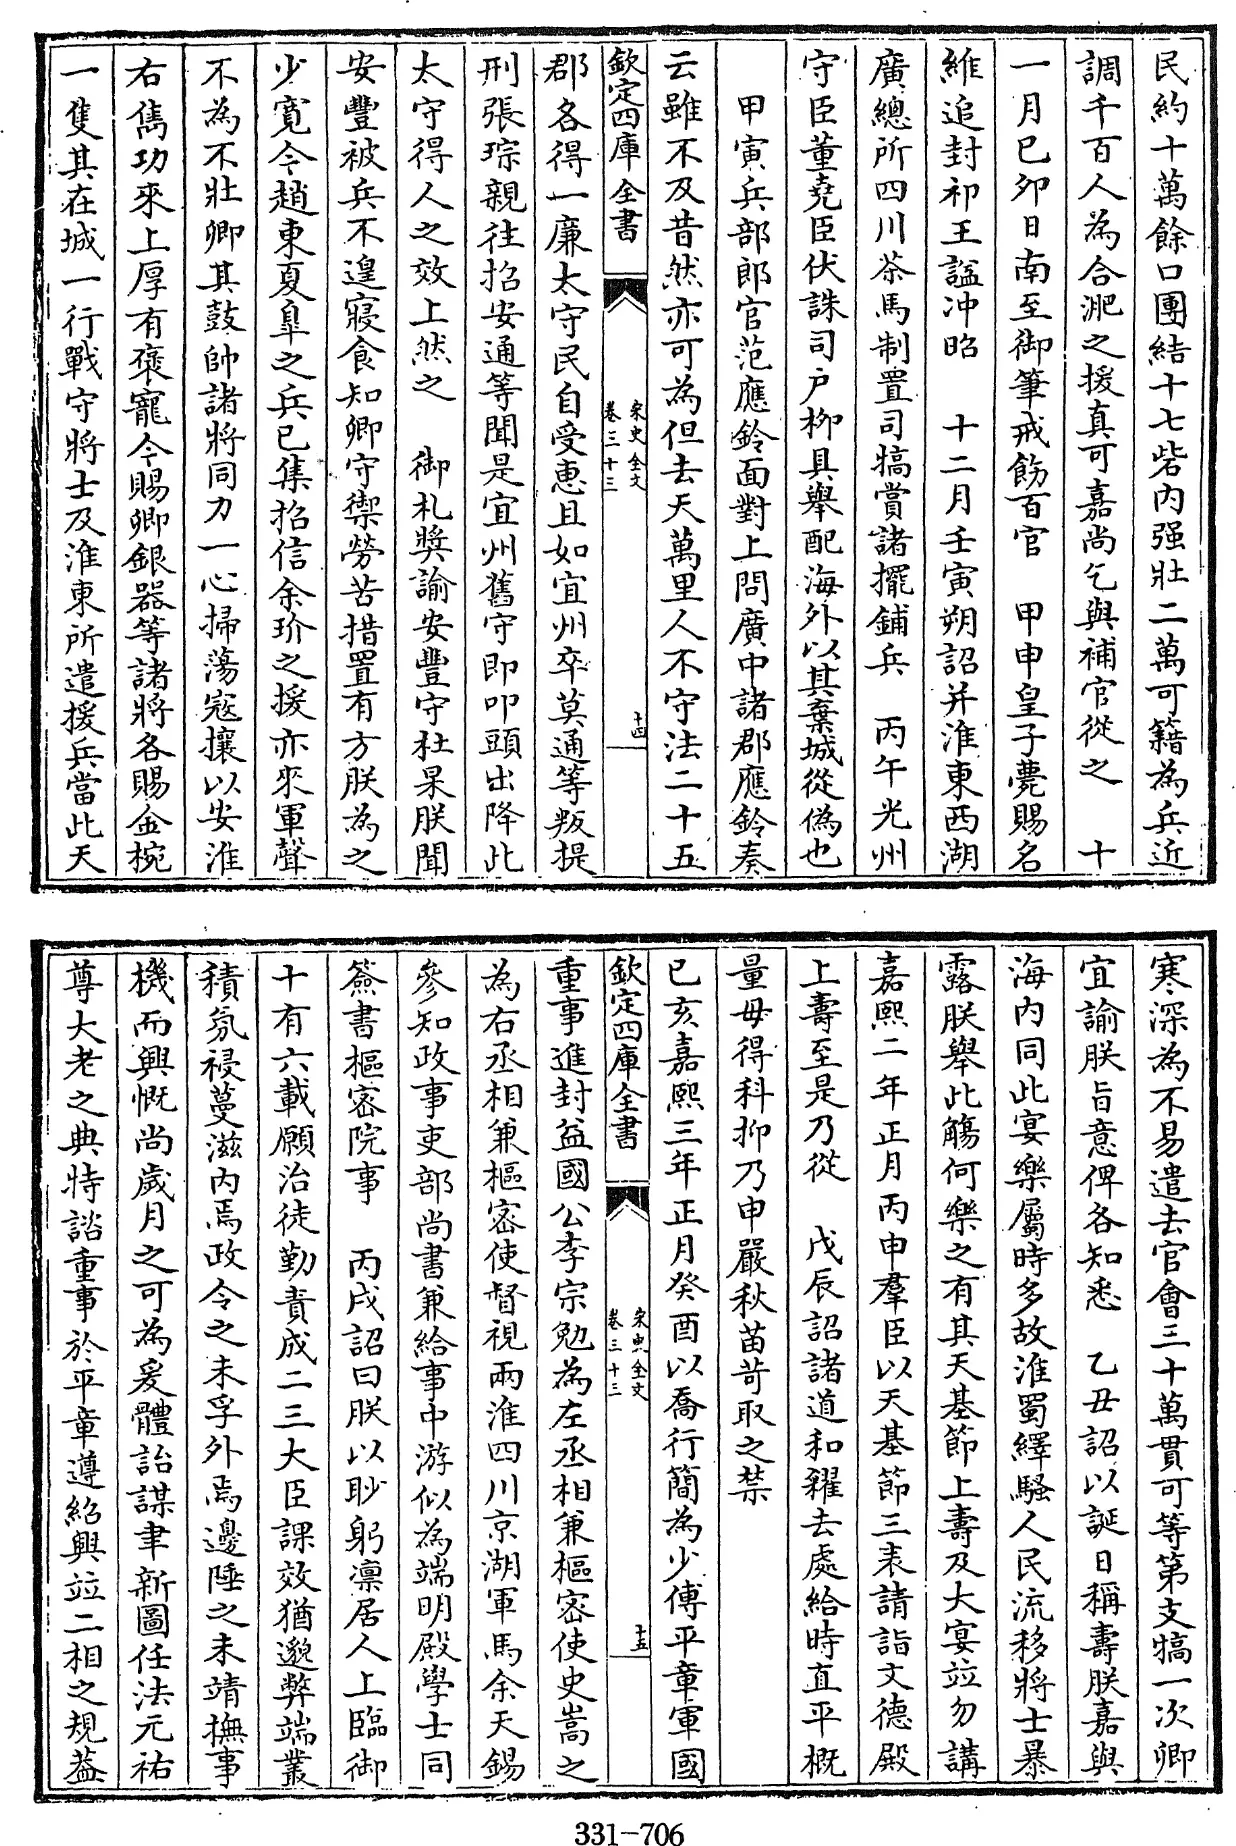 民約十萬餘口團結十七砦内强壯二萬可籍為兵近
調千百人為合淝之援真可嘉尚乞與補官從之　十
一月己夘日南至御筆戒飭百官　甲申皇子薨賜名
維追封祁王諡冲昭　十二月壬寅朔詔并淮東西湖
廣總所四川茶馬制置司犒賞諸擺鋪兵　丙午光州
守臣董堯臣伏誅司户栁具舉配海外以其棄城從偽也
甲寅兵部郎官范應鈴面對上問廣中諸郡應鈴奏
云雖不及昔然亦可為但去天萬里人不守法二十五
欽定四庫全書
宋史全文
卷三十三
十四
郡各得一廉太守民自受惠且如宜州卒莫通等叛提
刑張琮親往招安通等聞是宜州舊守即叩頭出降此
太守得人之效上然之　御札奬諭安豐守杜杲朕聞
安豐被兵不遑寢食知卿守禦勞苦措置有方朕為之
少寛今趙東夏臯之兵已集招信余玠之援亦來軍聲
不為不壯卿其鼓帥諸將同力一心掃蕩寇攘以安淮
右雋功來上厚有褒寵今賜卿銀器等諸將各賜金椀
一隻其在城一行戰守將士及淮東所遣援兵當此天
寒深為不易遣去官會三十萬貫可等第支犒一次卿
宜諭朕旨意俾各知悉　乙丑詔以誕日稱壽朕嘉與
海内同此宴樂屬時多故淮蜀繹騷人民流移將士暴
露朕舉此觴何樂之有其天基節上壽及大宴竝勿講
嘉熙二年正月丙申羣臣以天基節三表請詣文德殿
上壽至是乃從　戊辰詔諸道和糴去處給時直平概
量毋得科抑乃申嚴秋苗苛取之禁
己亥嘉熙三年正月癸酉以喬行簡為少傅平章軍國
欽定四庫全書
宋史全文
卷三十三
十五
重事進封益國公李宗勉為左丞相兼樞密使史嵩之
為右丞相兼樞密使督視兩淮四川京湖軍馬余天錫
參知政事吏部尚書兼給事中游似為端明殿學士同
簽書樞密院事　丙戌詔曰朕以眇躬凛居人上臨御
十有六載願治徒勤責成二三大臣課效猶邈弊端叢
積氛祲蔓滋内焉政令之未孚外焉邊陲之未靖撫事
機而興慨尚歲月之可為爰體詒謀聿新圖任法元祐
尊大老之典特諮重事於平章遵紹興竝二相之規蓋
331-706